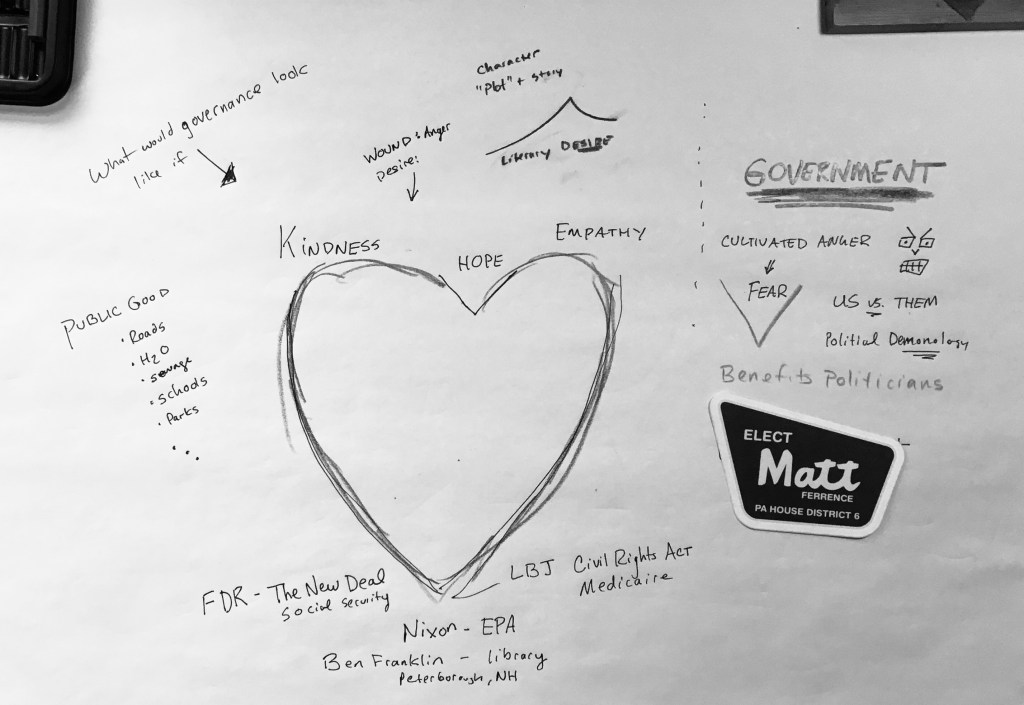 What would governance look
like if
Character
"Plot" + story
Literary DESIRE
WOUND & Anger
Desire:
KINDNESS
HOPE
EMPATHY
PUBLIC GOOD
• Roads
• H2O
• sewage
• schools
• Parks
...
FDR - The New Deal
Social Security
LBJ Civil Rights Act
Medicaire
Nixon - EPA
Ben Franklin - library
Peterborough, NH
GOVERNMENT
CULTIVATED ANGER
FEAR
US vs. THEM
Political Demonology
Benefits Politicians
ELECT
Matt
FERRENCE
PA HOUSE DISTRICT 6